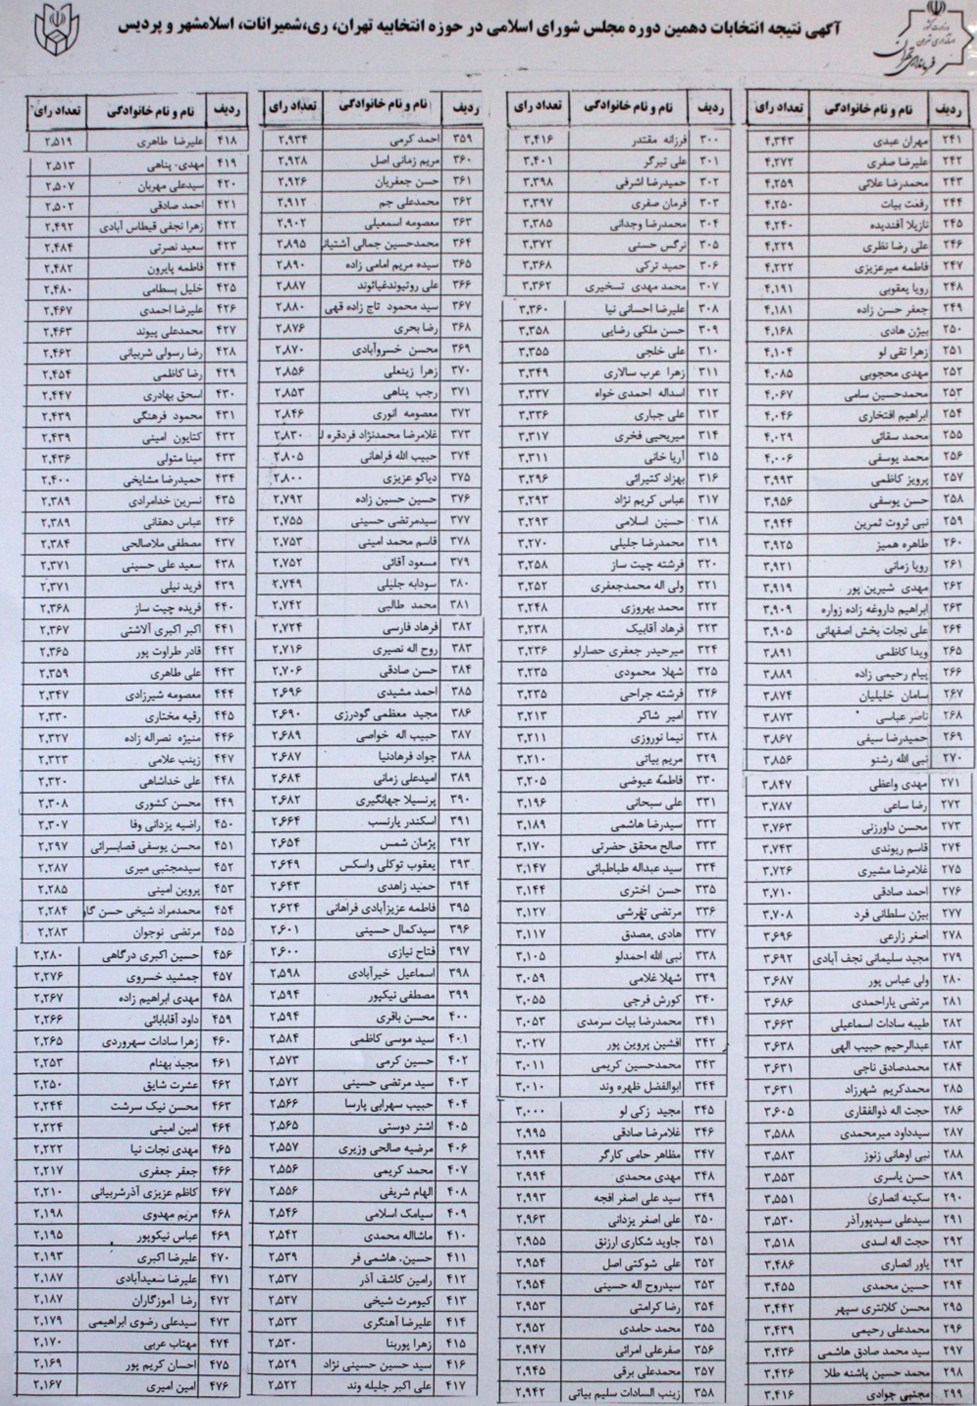 آگهی نتیجه انتخابات دهمین دوره مجلس شورای اسلامی در حوزه انتخابیه تهران، ری،شمیرانات، اسلامشهر و پردیس
ردیف نام و نام خانوادگی تعداد رای
۲۴۱ مهران عبدی ۴,۳۴۳
۲۴۲ علیرضا صفری ۴,۲۷۲
۲۴۳ محمدرضا علائی ۴,۲۵۹
۲۴۴ رفعت بیات ۴,۲۵۰
۲۴۵ نازیلا آفندیده ۴,۲۴۰
۲۴۶ علی رضا نظری ۴,۲۲۹
۲۴۷ فاطمه میرعزیزی ۴,۲۲۲
۲۴۸ رویا یعقوبی ۴,۱۹۱
۲۴۹ جعفر حسن زاده ۴,۱۸۱
۲۵۰ بیژن هادی ۴,۱۶۸
۲۵۱ زهرا تقی لو ۴,۱۰۴
۲۵۲ مهدی محجوبی ۴,۰۸۵
۲۵۳ محمدحسین سامی ۴,۰۶۷
۲۵۴ ابراهیم افتخاری ۴,۰۴۶
۲۵۵ محمد سقائی ۴,۰۲۹
۲۵۶ محمد یوسفی ۴,۰۰۶
۲۵۷ پرویز کاظمی ۳,۹۹۳
۲۵۸ حسن یوسفی ۳,۹۵۶
۲۵۹ نبی ثروت ثمرین ۳,۹۴۴
۲۶۰ طاهره همیز ۳,۹۲۵
۲۶۱ رویا زمانی ۳,۹۲۱
۲۶۲ مهدی شیرین پور ۳,۹۱۹
۲۶۳ ابراهیم داروغه زاده زواره ۳,۹۰۹
۲۶۴ علی نجات بخش اصفهانی ۳,۹۰۵
۲۶۵ ویدا کاظمی ۳,۸۹۱
۲۶۶ پیام رحیمی زاده ۳,۸۸۹
۲۶۷ سامان خلیلیان ۳,۸۷۴
۲۶۸ ناصر عباسی ۳,۸۷۳
۲۶۹ حمیدرضا سیفی ۳,۸۶۷
۲۷۰ نبی الله رشنو ۳,۸۵۶
۲۷۱ مهدی واعظی ۳,۸۴۷
۲۷۲ رضا ساعی ۳,۷۸۷
۲۷۳ محسن داورزنی ۳,۷۶۳
۲۷۴ قاسم ریوندی ۳,۷۴۳
۲۷۵ غلامرضا مشیری ۳,۷۲۶
۲۷۶ احمد صادقی ۳,۷۱۰
۲۷۷ بیژن سلطانی فرد ۳,۷۰۸
۲۷۸ اصغر زارعی ۳,۶۹۶
۲۷۹ مجید سلیمانی نجف آبادی ۳,۶۹۲
۲۸۰ ولی عباس پور ۳,۶۸۷
۲۸۱ مرتضی یاراحمدی ۳,۶۸۶
۲۸۲ طیبه سادات اسماعیلی ۳,۶۶۳
۲۸۳ عبدالرحیم حبیب الهی ۳,۶۳۸
۲۸۴ محمدصادق ناجی ۳,۶۳۱
۲۸۵ محمدکریم شهرزاد ۳,۶۳۱
۲۸۶ حجت اله ذوالفقاری ۳,۶۰۵
۲۸۷ سیدداود میرمحمدی ۳,۵۸۸
۲۸۸ نبی اوهانی زنوز ۳,۵۸۳
۲۸۹ حسن یاسری ۳,۵۵۳
۲۹۰ سکینه انصاری ۳,۵۵۱
۲۹۱ سیدعلی سیدپورآذر ۳,۵۳۰
۲۹۲ حجت اله اسدی ۳,۵۱۸
۲۹۳ یاور انصاری ۳,۴۸۶
۲۹۴ حسین محمدی ۳,۴۵۵
۲۹۵ محسن کلانتری سپهر ۳,۴۴۲
۲۹۶ محمدعلی رحیمی ۳,۴۳۹
۲۹۷ سید محمد صادق هاشمی ۳,۴۳۶
۲۹۸ محمد حسین پاشنه طلا ۳,۴۲۶
۲۹۹ مجتبی جوادی ۳,۴۱۶
ردیف نام و نام خانوادگی تعداد رای
۳۰۰ فرزانه مقتدر ۳,۴۱۶
۳۰۱ علی تیرگر ۳,۴۰۱
۳۰۲ حمیدرضا اشرفی ۳,۳۹۸
۳۰۳ فرمان صفری ۳,۳۹۷
۳۰۴ محمدرضا وجدانی ۳,۳۸۵
۳۰۵ نرگس حسنی ۳,۳۷۲
۳۰۶ حمید ترکی ۳,۳۶۸
۳۰۷ محمد مهدی تسخیری ۳,۳۶۲
۳۰۸ علیرضا احسانی نیا ۳,۳۶۰
۳۰۹ حسن ملکی رضایی ۳,۳۵۸
۳۱۰ علی خلجی ۳,۳۵۵
۳۱۱ زهرا عرب سالاری ۳,۳۴۹
۳۱۲ اسداله احمدی خواه ۳,۳۳۷
۳۱۳ علی جباری ۳,۳۳۶
۳۱۴ میریحیی فخری ۳,۳۱۷
۳۱۵ آریا خانی ۳,۳۱۱
۳۱۶ بهزاد کثیرائی ۳,۲۹۶
۳۱۷ عباس کریم نژاد ۳,۲۹۳
۳۱۸ حسین اسلامی ۳,۲۹۳
۳۱۹ محمدرضا جلیلی ۳,۲۷۰
۳۲۰ فرشته چیت ساز ۳,۲۵۸
۳۲۱ ولی اله محمدجعفری ۳,۲۵۲
۳۲۲ محمد بهروزی ۳,۲۴۸
۳۲۳ فرهاد آقابیک ۳,۲۳۸
۳۲۴ میرحیدر جعفری حصارلو ۳,۲۳۶
۳۲۵ شهلا محمودی ۳,۲۳۵
۳۲۶ فرشته جراحی ۳,۲۳۵
۳۲۷ امیر شاکر ۳,۲۱۳
۳۲۸ نیما نوروزی ۳,۲۱۱
۳۲۹ مریم بیاتی ۳,۲۱۰
۳۳۰ فاطمه عیوضی ۳,۲۰۵
۳۳۱ علی سبحانی ۳,۱۹۶
۳۳۲ سیدرضا هاشمی ۳,۱۸۹
۳۳۳ صالح محقق حضرتی ۳,۱۷۰
۳۳۴ سید عبداله طباطبائی ۳,۱۴۷
۳۳۵ حسن اختری ۳,۱۴۴
۳۳۶ مرتضی تفرشی ۳,۱۲۷
۳۳۷ هادی مصدق ۳,۱۱۷
۳۳۸ نبی الله احمدلو ۳,۱۰۵
۳۳۹ شهلا غلامی ۳,۰۵۹
۳۴۰ کورش فرجی ۳,۰۵۵
۳۴۱ محمدرضا بیات سرمدی ۳,۰۵۳
۳۴۲ افشین پروین پور ۳,۰۲۷
۳۴۳ محمدحسین کریمی ۳,۰۱۱
۳۴۴ ابوالفضل ظهره وند ۳,۰۱۰
۳۴۵ مجید زکی لو ۳,۰۰۰
۳۴۶ غلامرضا صادقی ۲,۹۹۵
۳۴۷ مظاهر حامی کارگر ۲,۹۹۴
۳۴۸ مهدی محمدی ۲,۹۹۴
۳۴۹ سید علی اصغر افجه ۲,۹۹۳
۳۵۰ علی اصغر یزدانی ۲,۹۶۳
۳۵۱ جاوید شکاری ارزنق ۲,۹۵۵
۳۵۲ علی شوکتی اصل ۲,۹۵۴
۳۵۳ سیدروح اله حسینی ۲,۹۵۴
۳۵۴ رضا کرامتی ۲,۹۵۳
۳۵۵ محمد حامدی ۲,۹۵۲
۳۵۶ صفرعلی امرائی ۲,۹۴۷
۳۵۷ محمدعلی برقی ۲,۹۴۵
۳۵۸ زینب السادات سلیم بیاتی ۲,۹۴۲
ردیف نام و نام خانوادگی تعداد رای
۳۵۹ احمد کرمی ۲,۹۳۴
۳۶۰ مریم زمانی اصل ۲,۹۲۸
۳۶۱ حسن جعفریان ۲,۹۲۶
۳۶۲ محمدعلی جم ۲,۹۱۲
۳۶۳ معصومه اسمعیلی ۲,۹۰۲
۳۶۴ محمدحسین جمالی آشتیانی ۲,۸۹۵
۳۶۵ سیده مریم امامی زاده ۲,۸۹۰
۳۶۶ علی روتیوندغیاثوند ۲,۸۸۷
۳۶۷ سید محمود تاج زاده قهی ۲,۸۸۰
۳۶۸ رضا بحری ۲,۸۷۶
۳۶۹ محسن خسروآبادی ۲,۸۷۰
۳۷۰ زهرا زینعلی ۲,۸۵۶
۳۷۱ رجب پناهی ۲,۸۵۳
۳۷۲ معصومه انوری ۲,۸۴۶
۳۷۳ غلامرضا محمدنژاد فردقره ل ۲,۸۳۰
۳۷۴ حبیب الله فراهانی ۲,۸۰۵
۳۷۵ دیاکو عزیزی ۲,۸۰۰
۳۷۶ حسین حسین زاده ۲,۷۹۲
۳۷۷ سیدمرتضی حسینی ۲,۷۵۵
۳۷۸ قاسم محمد امینی ۲,۷۵۳
۳۷۹ مسعود آقائی ۲,۷۵۲
۳۸۰ سودابه جلیلی ۲,۷۴۹
۳۸۱ محمد طالبی ۲,۷۴۲
۳۸۲ فرهاد فارسی ۲,۷۲۴
۳۸۳ روح اله نصیری ۲,۷۱۶
۳۸۴ حسن صادقی ۲,۷۰۶
۳۸۵ احمد مشیدی ۲,۶۹۶
۳۸۶ مجید معظمی گودرزی ۲,۶۹۰
۳۸۷ حبیب اله خواصی ۲,۶۸۹
۳۸۸ جواد فرهادنیا ۲,۶۸۷
۳۸۹ امیدعلی زمانی ۲,۶۸۴
۳۹۰ پرنسیلا جهانگیری ۲,۶۸۲
۳۹۱ اسکندر پارنسب ۲,۶۶۴
۳۹۲ پژمان شمس ۲,۶۵۴
۳۹۳ یعقوب توکلی واسکس ۲,۶۴۹
۳۹۴ حمید زاهدی ۲,۶۴۳
۳۹۵ فاطمه عزیزآبادی فراهانی ۲,۶۲۴
۳۹۶ سیدکمال حسینی ۲,۶۰۱
۳۹۷ فتاح نیازی ۲,۶۰۰
۳۹۸ اسماعیل خیرآبادی ۲,۵۹۸
۳۹۹ مصطفی نیکپور ۲,۵۹۴
۴۰۰ محسن باقری ۲,۵۹۴
۴۰۱ سید موسی کاظمی ۲,۵۸۴
۴۰۲ حسین کرمی ۲,۵۷۳
۴۰۳ سید مرتضی حسینی ۲,۵۷۲
۴۰۴ حبیب سهرابی پارسا ۲,۵۶۶
۴۰۵ اشتر دوستی ۲,۵۶۵
۴۰۶ مرضیه صالحی وزیری ۲,۵۵۷
۴۰۷ محمد کریمی ۲,۵۵۶
۴۰۸ الهام شریفی ۲,۵۵۶
۴۰۹ سیامک اسلامی ۲,۵۴۶
۴۱۰ ماشااله محمدی ۲,۵۴۲
۴۱۱ حسین هاشمی فر ۲,۵۳۹
۴۱۲ رامین کاشف آذر ۲,۵۳۷
۴۱۳ کیومرث شیخی ۲,۵۳۷
۴۱۴ علیرضا آهنگری ۲,۵۳۳
۴۱۵ زهرا پوربنا ۲,۵۳۰
۴۱۶ سید حسین حسینی نژاد ۲,۵۲۹
۴۱۷ علی اکبر جلیله وند ۲,۵۲۲
ردیف نام و نام خانوادگی تعداد رای
۴۱۸ علیرضا طاهری ۲,۵۱۹
۴۱۹ مهدی پناهی ۲,۵۱۳
۴۲۰ سیدعلی مهربان ۲,۵۰۷
۴۲۱ احمد صادقی ۲,۵۰۲
۴۲۲ زهرا نجفی قیطاس آبادی ۲,۴۹۲
۴۲۳ سعید نصرتی ۲,۴۸۴
۴۲۴ فاطمه پایرون ۲,۴۸۲
۴۲۵ خلیل بسطامی ۲,۴۸۰
۴۲۶ علیرضا احمدی ۲,۴۶۷
۴۲۷ محمدعلی پیوند ۲,۴۶۳
۴۲۸ رضا رسولی شربیانی ۲,۴۶۲
۴۲۹ رضا کاظمی ۲,۴۵۴
۴۳۰ اسحق بهادری ۲,۴۴۷
۴۳۱ محمود فرهنگی ۲,۴۳۹
۴۳۲ کتایون امینی ۲,۴۳۹
۴۳۳ مینا متولی ۲,۴۳۶
۴۳۴ حمیدرضا مشایخی ۲,۴۰۰
۴۳۵ نسرین خدامرادی ۲,۳۸۹
۴۳۶ عباس دهقانی ۲,۳۸۹
۴۳۷ مصطفی ملاصالحی ۲,۳۸۴
۴۳۸ سعید علی حسینی ۲,۳۷۱
۴۳۹ فرید نیلی ۲,۳۷۱
۴۴۰ فریده چیت ساز ۲,۳۶۸
۴۴۱ اکبر اکبری آلاشتی ۲,۳۶۷
۴۴۲ قادر طراوت پور ۲,۳۶۵
۴۴۳ علی طاهری ۲,۳۵۹
۴۴۴ معصومه شیرزادی ۲,۳۴۷
۴۴۵ رقیه مختاری ۲,۳۳۰
۴۴۶ منیژه نصراله زاده ۲,۳۲۷
۴۴۷ زینب علامی ۲,۳۲۳
۴۴۸ علی خداشاهی ۲,۳۲۰
۴۴۹ محسن کشوری ۲,۳۰۸
۴۵۰ راضیه یزدانی وفا ۲,۳۰۷
۴۵۱ محسن یوسفی قصابسرائی ۲,۲۹۷
۴۵۲ سیدمجتبی میری ۲,۲۸۷
۴۵۳ پروین امینی ۲,۲۸۵
۴۵۴ محمدمراد شیخی حسن گاو ۲,۲۸۴
۴۵۵ مرتضی نوجوان ۲,۲۸۳
۴۵۶ حسین اکبری درگاهی ۲,۲۸۰
۴۵۷ جمشید خسروی ۲,۲۷۶
۴۵۸ مهدی ابراهیم زاده ۲,۲۶۷
۴۵۹ داود آقابابائی ۲,۲۶۶
۴۶۰ زهرا سادات سهروردی ۲,۲۶۵
۴۶۱ مجید بهنام ۲,۲۵۳
۴۶۲ عشرت شایق ۲,۲۵۰
۴۶۳ محسن نیک سرشت ۲,۲۴۴
۴۶۴ امین امینی ۲,۲۲۴
۴۶۵ مهدی نجات نیا ۲,۲۲۲
۴۶۶ جعفر جعفری ۲,۲۱۷
۴۶۷ کاظم عزیزی آذرشربیانی ۲,۲۱۰
۴۶۸ مریم مهدوی ۲,۱۹۸
۴۶۹ عباس نیکوپور ۲,۱۹۵
۴۷۰ علیرضا اکبری ۲,۱۹۳
۴۷۱ علیرضا سعیدآبادی ۲,۱۸۷
۴۷۲ رضا آموزگاران ۲,۱۸۷
۴۷۳ سیدعلی رضوی ابراهیمی ۲,۱۷۹
۴۷۴ مهتاب عربی ۲,۱۷۰
۴۷۵ احسان کریم پور ۲,۱۶۹
۴۷۶ امین امیری ۲,۱۶۷